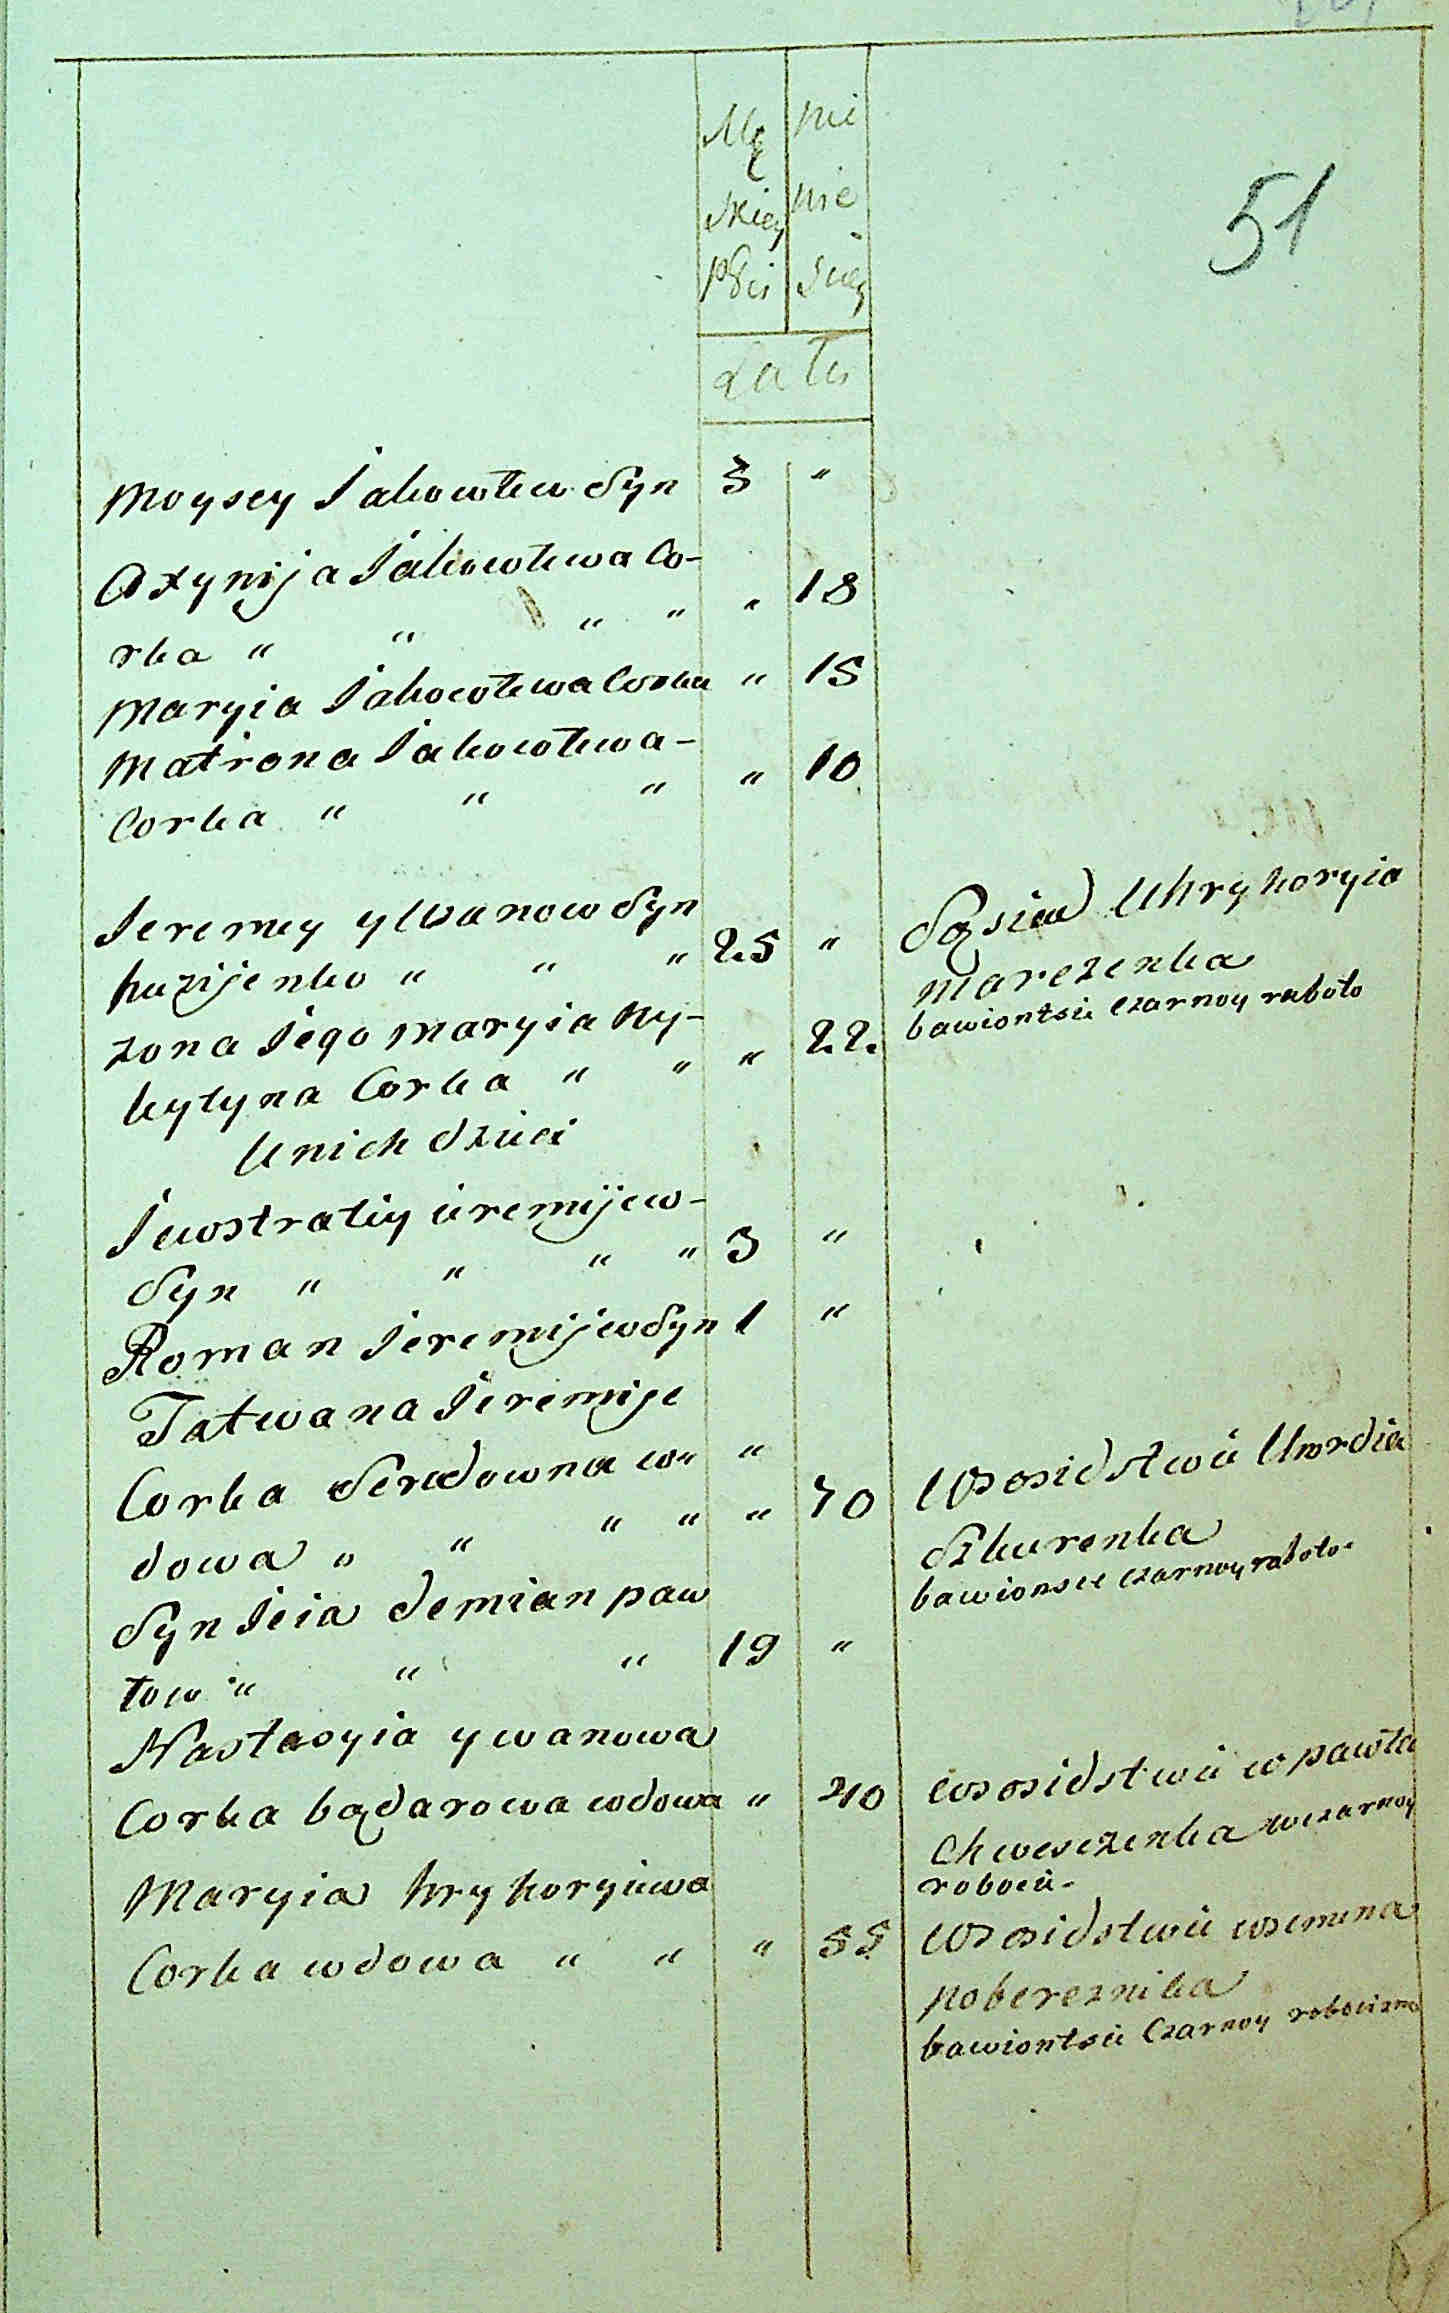 51
Mę żeń
skiey skie
płci iuż
Lata
Moysey Jakowlew Syn 3 "
Oxynija Jakowlewa Co-
rka " " " " " 18
Maryia Jakowlewa Corka " 15
Matrona Jakowlewa-
Corka " " " " 10
Jeremey ywanow Syn
huzijenko " " " 25 " Sąsiad Uhryhoryia
Marczenka
zona Jego Maryia Ny-
kytyna Corka " " " 22. bawiontsie czarnoy raboto
U nich dzieci
Jewstratiy ieremijew-
Syn " " " " 3 "
Roman Jeremijew Syn 1 "
Tatwana Jeremije
Corka Serdowna w" "
dowa " " " " " 70 W sosidstwie Uordia
Szkurenka
bawionsie czarnoy raboto-
Syn Jeia Demian paw
low " " " 19 "
Nastasyia ywanowa
Corka bądarowa wdowa " 40 w sosidstwie w pawła
Chwesczenka w czarnoy
robocie-
Maryia hryhoryiewa
Corka wdowa " " " 55 W sosidstwie w semena
pobereznika
bawiontsie Czarnoy robocizno